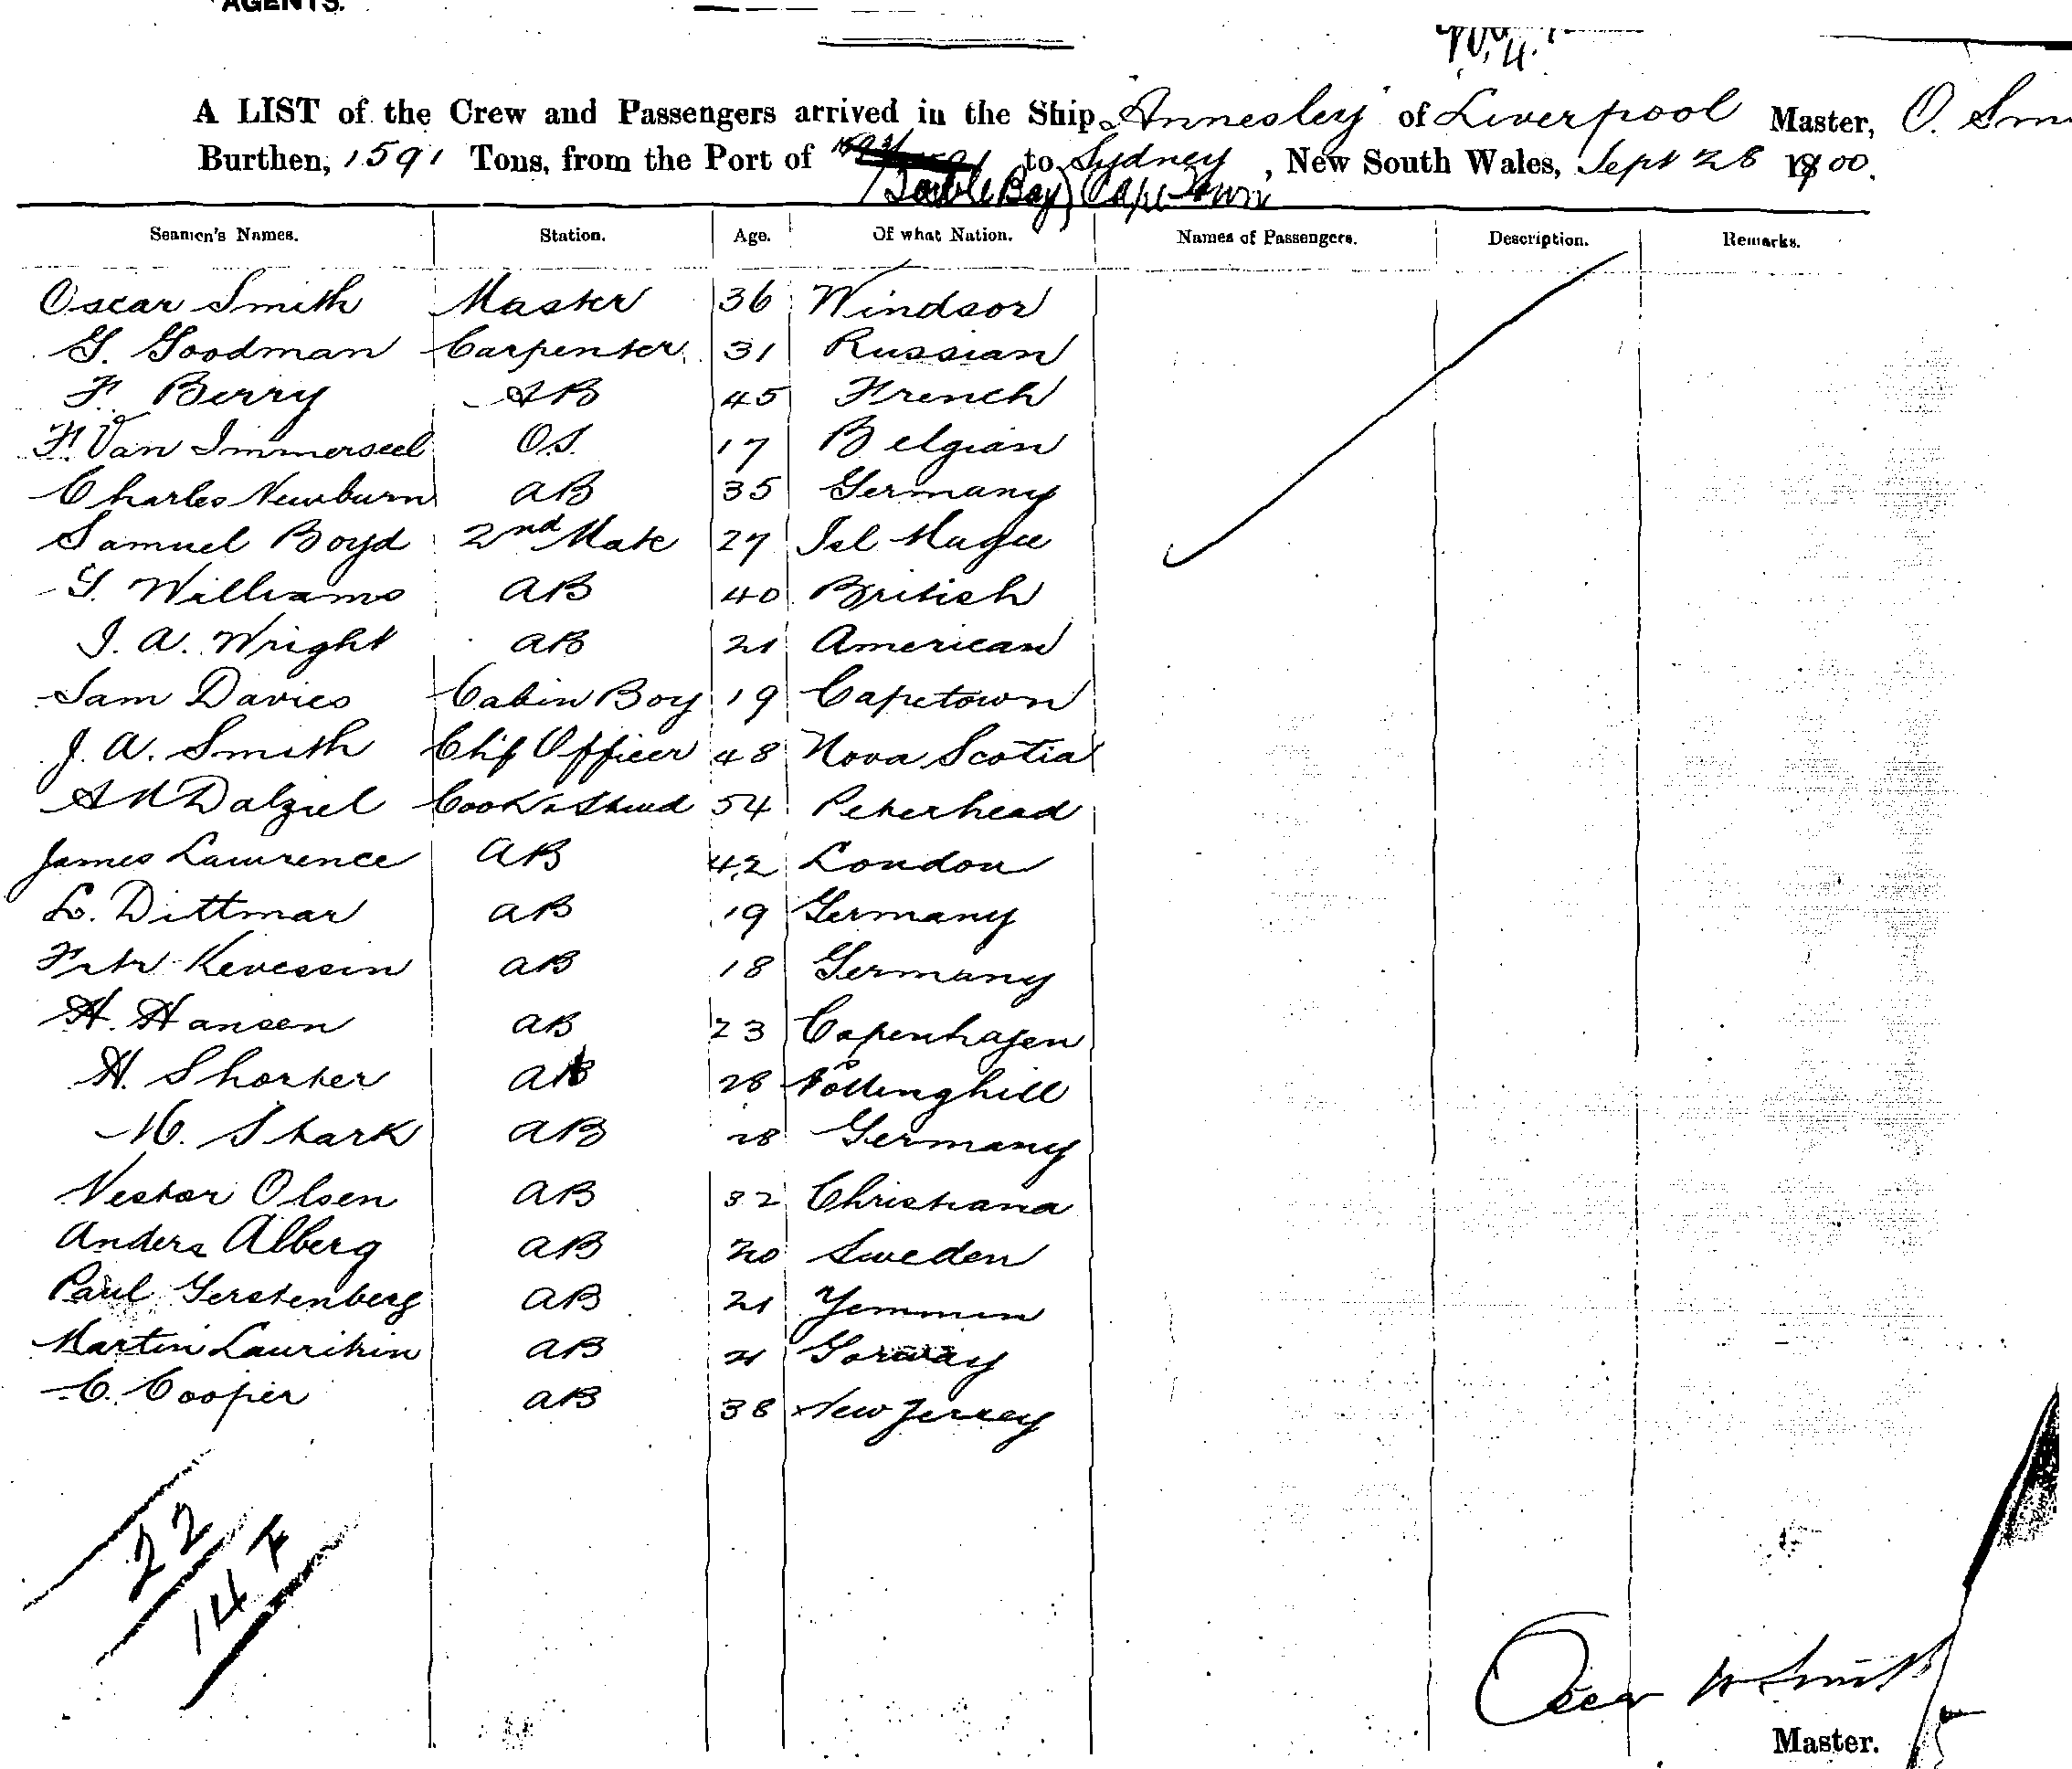 AGENTS.
A LIST of the Crew and Passengers arrived in the Ship Annesley of Liverpool Master, O. Smi
Burthen, 1591 Tons, from the Port of to Sydney, New South Wales, Sept 28 1900.
(Table Bay) Cape Town
Seamen's Names. Station. Age. Of what Nation. Names of Passengers. Description. Remarks.
Oscar Smith Master 36 Windsor
G. Goodman Carpenter 31 Russian
F. Berry AB 45 French
F. Van Immerseel O.S. 17 Belgian
Charles Newburn AB 35 Germany
Samuel Boyd 2nd Mate 27 Isl Magee
G. Williams AB 40 British
J. A. Wright AB 21 American
Sam Davies Cabin Boy 19 Capetown
J. A. Smith Chif Officer 48 Nova Scotia
Dalziel Cook & Stewd 54 Peterhead
James Lawrence AB 42 London
L. Dittmar AB 19 Germany
Kevessin AB 18 Germany
H. Hansen AB 23 Copenhagen
H. Shorter AB 28 Nottinghill
M. Stark AB 28 Germany
Nestor Olsen AB 32 Christiana
Anders Alberg AB 20 Sweden
Paul Gerstenberg AB 21
Martin AB 21
C. Cooper AB 38 New Jersey
22
14 F
Oscar W Smith
Master.